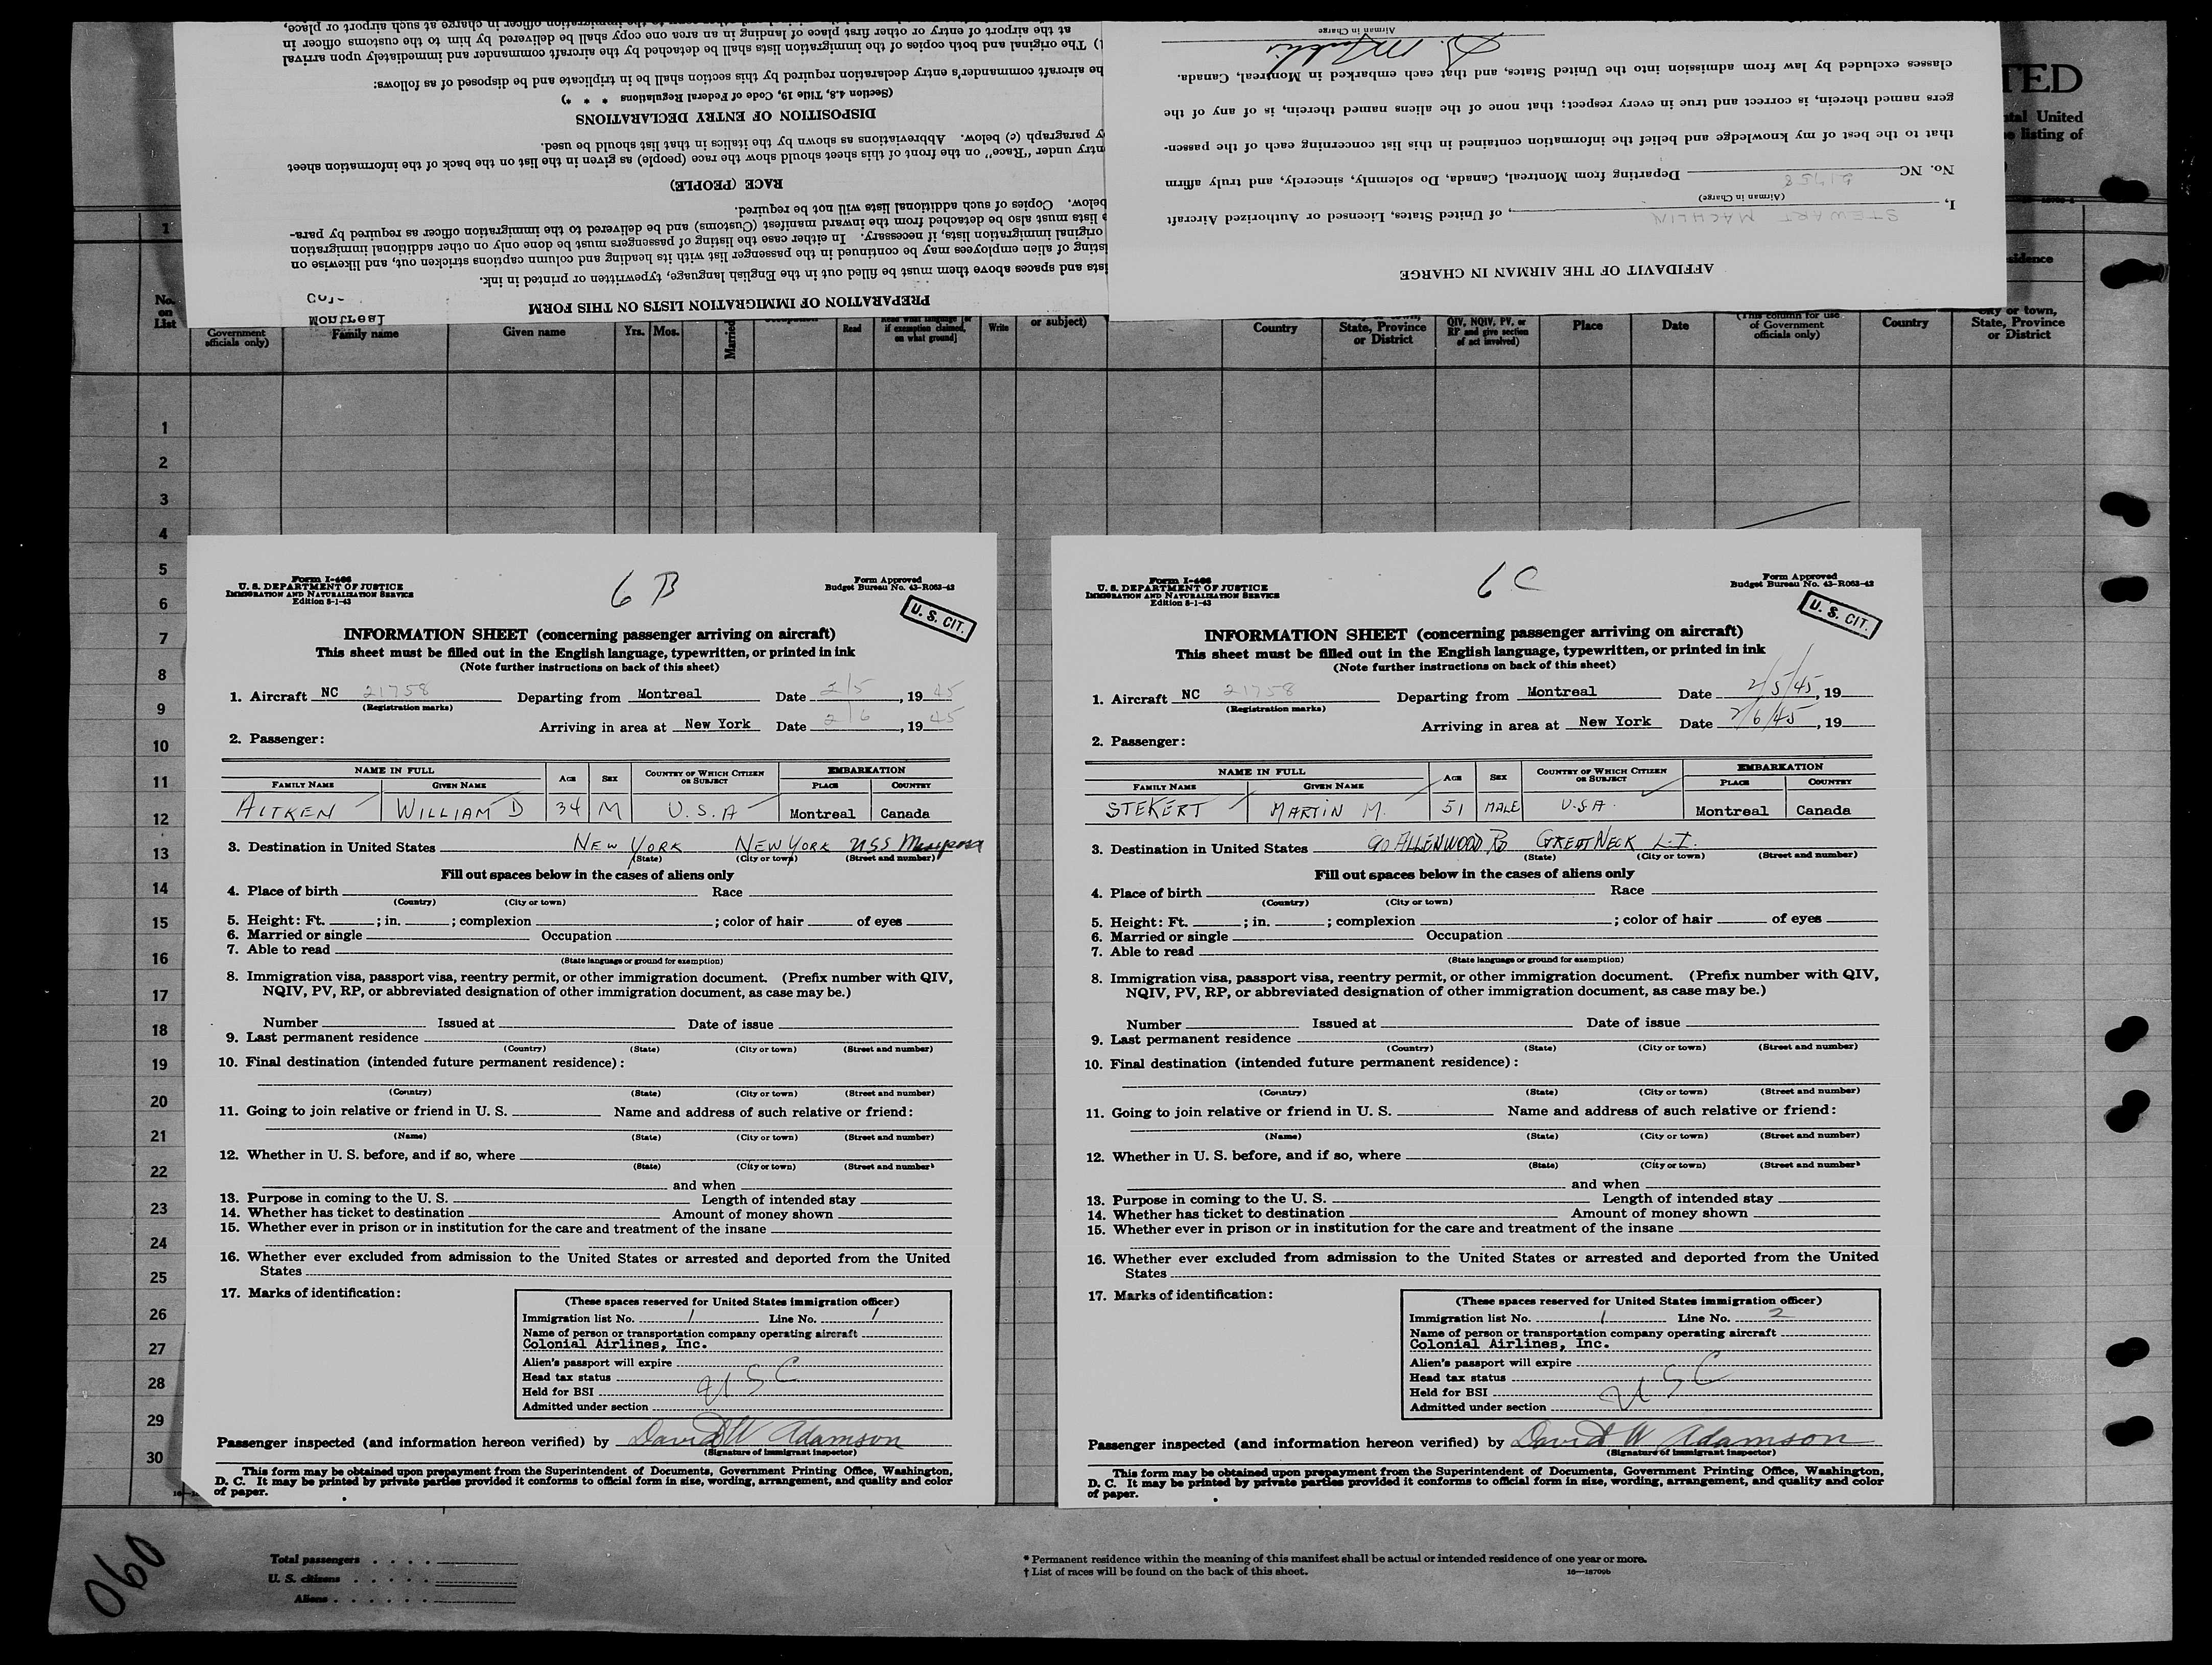 at the airport of entry or other first place of landing in an area one copy shall be delivered by him to the customs officer in charge at such airport or place,
1) The original and both copies of the immigration lists shall be detached by the aircraft commander and immediately upon arrival
he aircraft commander's entry declaration required by this section shall be in triplicate and be disposed of as follows:
(Section 4.8, Title 19, Code of Federal Regulations * * *)
DISPOSITION OF ENTRY DECLARATIONS
y paragraph (c) below. Abbreviations as shown by the italics in that list should be used.
ntry under "Race" on the front of this sheet should show the race (people) as given in the list on the back of the information sheet
RACE (PEOPLE)
below. Copies of such additional lists will not be required.
e lists must also be detached from the inward manifest (Customs) and be delivered to the immigration officer as required by para-
original immigration lists, if necessary. In either case the listing of passengers must be done only on other additional immigration
sting of alien employees may be continued in the passenger list with its heading and column captions stricken out, and likewise on
ists and spaces above them must be filled out in the English language, typewritten or printed in ink.
PREPARATION OF IMMIGRATION LISTS ON THIS FORM
Montreal
Airman in Charge
classes excluded by law from admission into the United States, and that each embarked in Montreal, Canada.
gers named therein, is correct and true in every respect; that none of the aliens named therein, is of any of the
that to the best of my knowledge and belief the information contained in this list concerning each of the passen-
No. NC 21758 Departing from Montreal, Canada, Do solemnly, sincerely, and truly affirm
(Airman in Charge)
I, STEWART MACHLIN, of United States, Licensed or Authorized Aircraft
AFFIDAVIT OF THE AIRMAN IN CHARGE
TED
ntal United
e listing of
sidence
No. on List
Government officials only)
Family name
Given name
Yrs. Mos.
Married
Read
Read what language [or if exemption claimed, on what ground]
Write
or subject)
Country
State, Province or District
QIV, NQIV, PV, or RP and give section of act involved)
Place
Date
(This column for use of Government officials only)
Country
City or town, State, Province or District
1
2
3
4
5
6
7
8
9
10
11
12
13
14
15
16
17
18
19
20
21
22
23
24
25
26
27
28
29
30
Form I-466
U. S. DEPARTMENT OF JUSTICE
IMMIGRATION AND NATURALIZATION SERVICE
Edition 8-1-43
6 B
Form Approved
Budget Bureau No. 43-R063-43
U. S. CIT.
INFORMATION SHEET (concerning passenger arriving on aircraft)
This sheet must be filled out in the English language, typewritten, or printed in ink
(Note further instructions on back of this sheet)
1. Aircraft NC 21758 Departing from Montreal Date 2/5, 1945
(Registration marks)
Arriving in area at New York Date 2/6, 1945
2. Passenger:
NAME IN FULL AGE SEX COUNTRY OF WHICH CITIZEN OR SUBJECT EMBARKATION
FAMILY NAME GIVEN NAME PLACE COUNTRY
AITKEN WILLIAM D 34 M U.S.A Montreal Canada
3. Destination in United States NEW YORK NEW YORK USS Mariposa
(State) (City or town) (Street and number)
Fill out spaces below in the cases of aliens only
4. Place of birth Race
(Country) (City or town)
5. Height: Ft. ; in. ; complexion ; color of hair of eyes
6. Married or single Occupation
7. Able to read
(State language or ground for exemption)
8. Immigration visa, passport visa, reentry permit, or other immigration document. (Prefix number with QIV,
NQIV, PV, RP, or abbreviated designation of other immigration document, as case may be.)
Number Issued at Date of issue
9. Last permanent residence
(Country) (State) (City or town) (Street and number)
10. Final destination (intended future permanent residence):
(Country) (State) (City or town) (Street and number)
11. Going to join relative or friend in U. S. Name and address of such relative or friend:
(Name) (State) (City or town) (Street and number)
12. Whether in U. S. before, and if so, where
(State) (City or town) (Street and number)
and when
13. Purpose in coming to the U. S. Length of intended stay
14. Whether has ticket to destination Amount of money shown
15. Whether ever in prison or in institution for the care and treatment of the insane
16. Whether ever excluded from admission to the United States or arrested and deported from the United
States
17. Marks of identification:
(These spaces reserved for United States immigration officer)
Immigration list No. 1 Line No. 1
Name of person or transportation company operating aircraft
Colonial Airlines, Inc.
Alien's passport will expire
Head tax status
Held for BSI USC
Admitted under section
Passenger inspected (and information hereon verified) by David W Adamson
(Signature of immigrant inspector)
This form may be obtained upon prepayment from the Superintendent of Documents, Government Printing Office, Washington,
D. C. It may be printed by private parties provided it conforms to official form in size, wording, arrangement, and quality and color
of paper.
Form I-466
U. S. DEPARTMENT OF JUSTICE
IMMIGRATION AND NATURALIZATION SERVICE
Edition 8-1-43
6 C
Form Approved
Budget Bureau No. 43-R063-43
U. S. CIT.
INFORMATION SHEET (concerning passenger arriving on aircraft)
This sheet must be filled out in the English language, typewritten, or printed in ink
(Note further instructions on back of this sheet)
1. Aircraft NC 21758 Departing from Montreal Date 2/5/45, 19
(Registration marks)
Arriving in area at New York Date 2/6/45, 19
2. Passenger:
NAME IN FULL AGE SEX COUNTRY OF WHICH CITIZEN OR SUBJECT EMBARKATION
FAMILY NAME GIVEN NAME PLACE COUNTRY
STEKERT MARTIN M. 51 MALE U.S.A. Montreal Canada
3. Destination in United States 90 ALLENWOOD RD GREAT NECK L.I.
(State) (City or town) (Street and number)
Fill out spaces below in the cases of aliens only
4. Place of birth Race
(Country) (City or town)
5. Height: Ft. ; in. ; complexion ; color of hair of eyes
6. Married or single Occupation
7. Able to read
(State language or ground for exemption)
8. Immigration visa, passport visa, reentry permit, or other immigration document. (Prefix number with QIV,
NQIV, PV, RP, or abbreviated designation of other immigration document, as case may be.)
Number Issued at Date of issue
9. Last permanent residence
(Country) (State) (City or town) (Street and number)
10. Final destination (intended future permanent residence):
(Country) (State) (City or town) (Street and number)
11. Going to join relative or friend in U. S. Name and address of such relative or friend:
(Name) (State) (City or town) (Street and number)
12. Whether in U. S. before, and if so, where
(State) (City or town) (Street and number)
and when
13. Purpose in coming to the U. S. Length of intended stay
14. Whether has ticket to destination Amount of money shown
15. Whether ever in prison or in institution for the care and treatment of the insane
16. Whether ever excluded from admission to the United States or arrested and deported from the United
States
17. Marks of identification:
(These spaces reserved for United States immigration officer)
Immigration list No. 1 Line No. 2
Name of person or transportation company operating aircraft
Colonial Airlines, Inc.
Alien's passport will expire
Head tax status
Held for BSI USC
Admitted under section
Passenger inspected (and information hereon verified) by David W Adamson
(Signature of immigrant inspector)
This form may be obtained upon prepayment from the Superintendent of Documents, Government Printing Office, Washington,
D. C. It may be printed by private parties provided it conforms to official form in size, wording, arrangement, and quality and color
of paper.
060
Total passengers
U. S. citizens
Aliens
* Permanent residence within the meaning of this manifest shall be actual or intended residence of one year or more.
† List of races will be found on the back of this sheet.
16—18700b